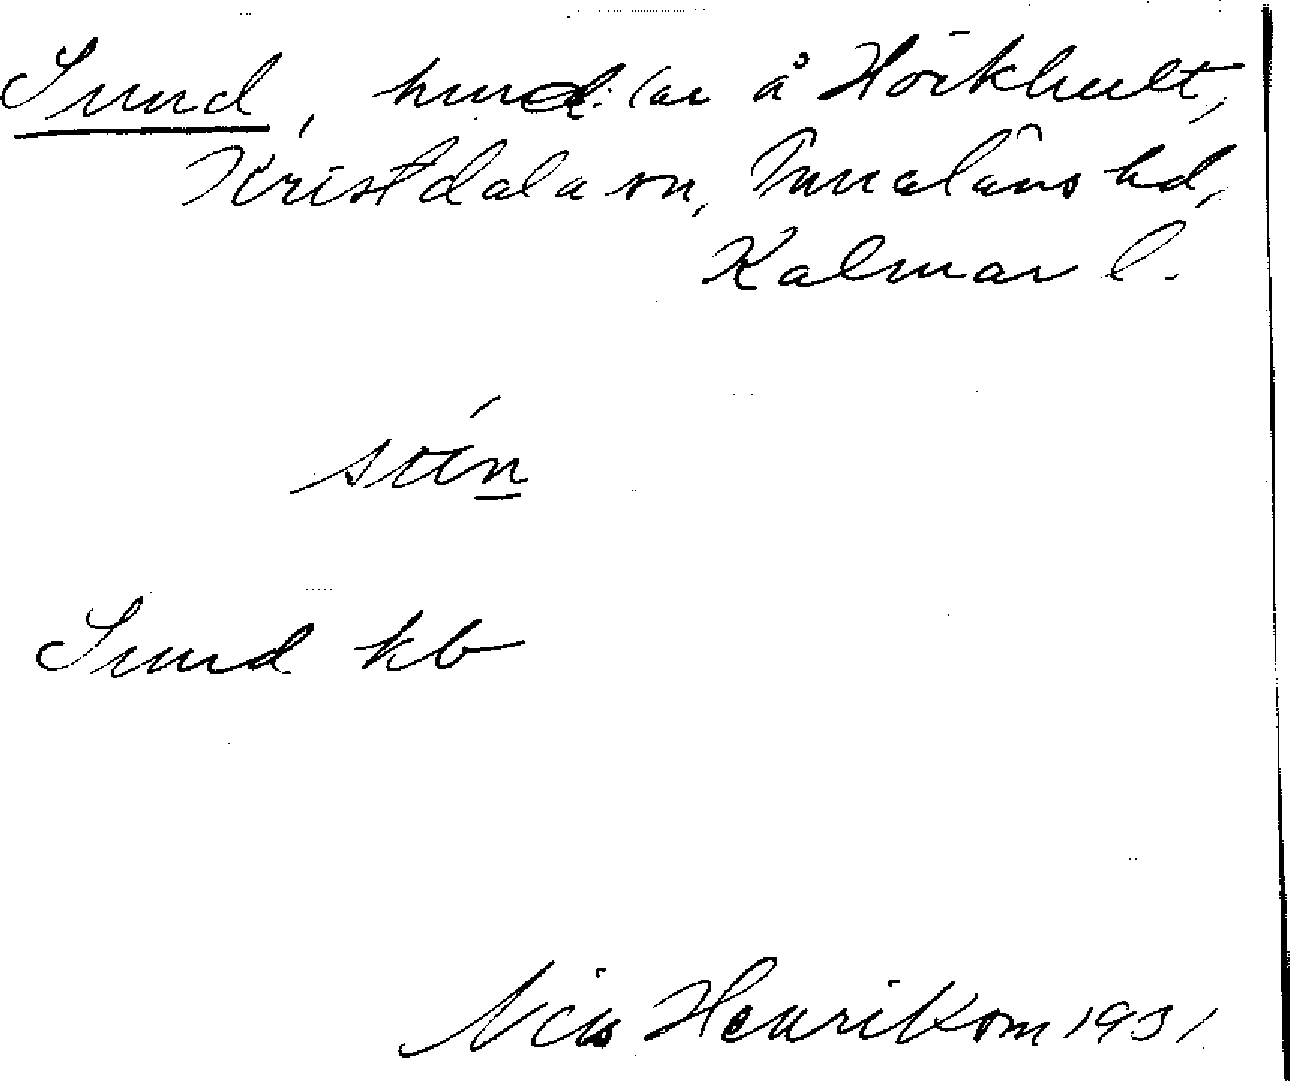 Sund, hmd: lar å Hökhult,
Kristdala sn, Tunaläns hd,
Kalmar l.
Sund kb
Nils Henrikson 1931